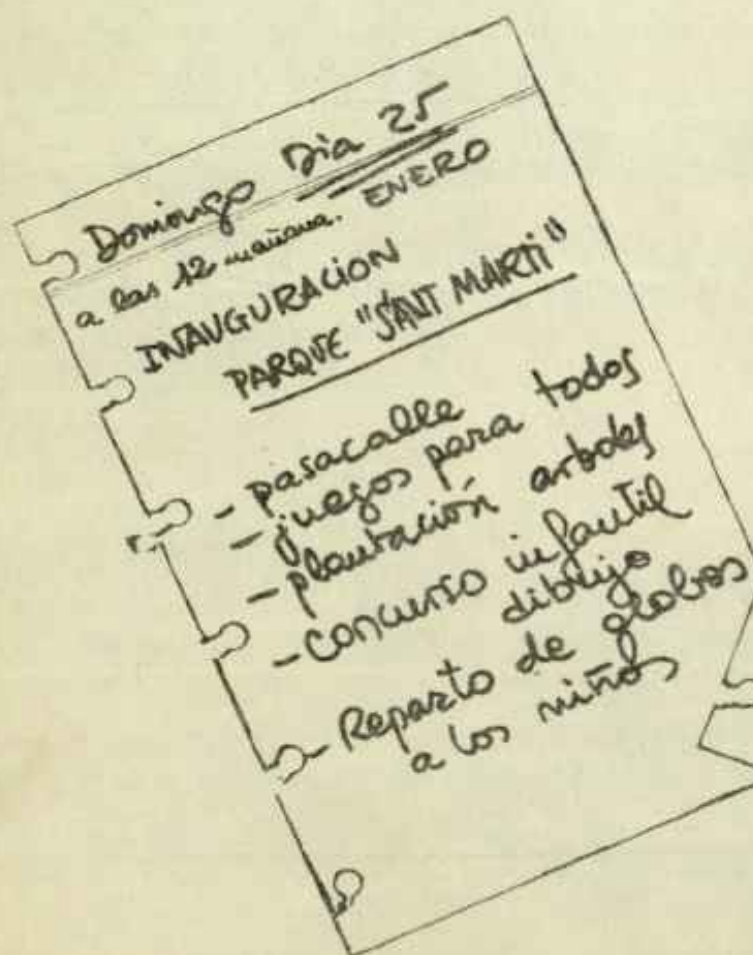 Domingo Dia 25
a las 12 mañana. ENERO
INAUGURACION
PARQUE "SANT MARTI"
- pasacalle
- juegos para todos
- plantación arboles
- concurso infantil
dibujo
- Reparto de globos
a los niños